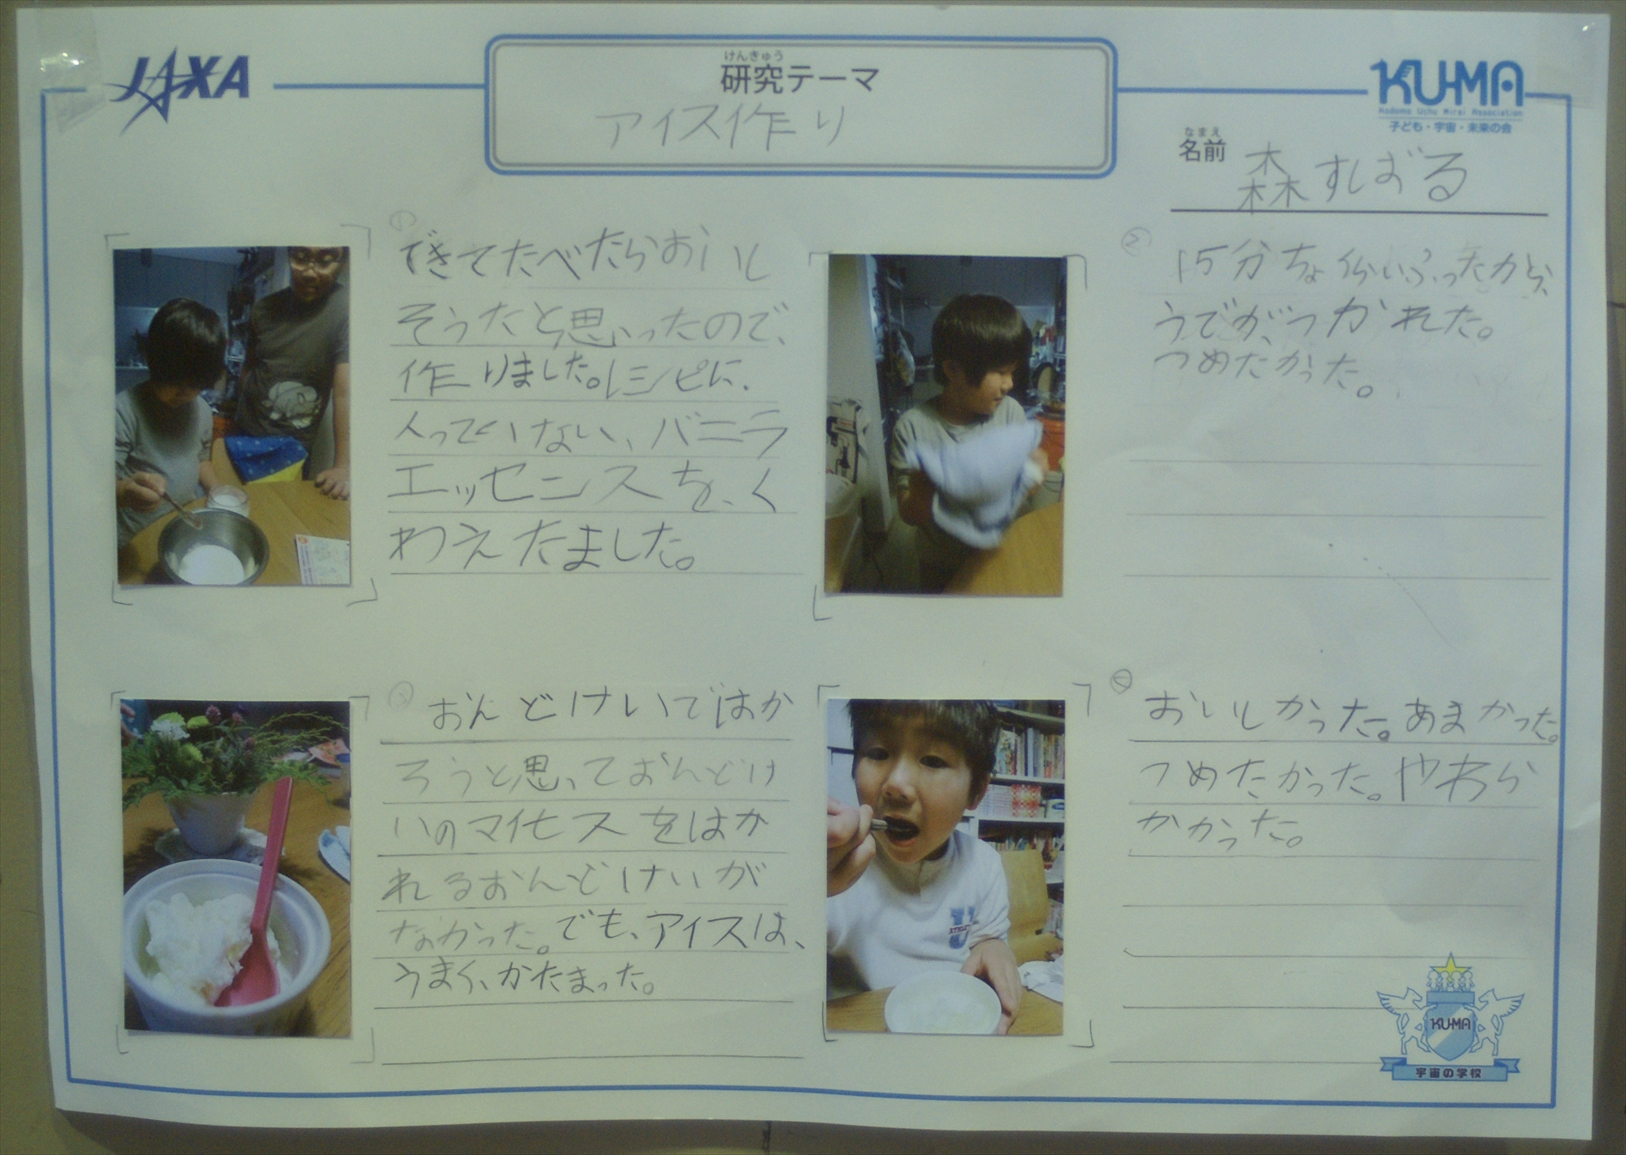 JAXA
けんきゅう
研究テーマ
アイス作り
KU-MA
Kodomo Uchu Mirai Association
子ども・宇宙・未来の会
なまえ
名前
森すばる
①
できてたべたらおいし
そうたと思いったので、
作りました。レシピに、
入っていない、バニラ
エッセンスを、く
わえたました。
②
15分ちょい
ふったから、
うでが、つかれた。
つめたかった。
③
おんどけいではか
ろうと思っておんどけ
いのマイナスをはか
れるおんどけいが
なかった。でも、アイスは、
うまく、かたまった。
④
おいしかった。あまかった。
つめたかった。やわら
かかった。
KU-MA
宇宙の学校